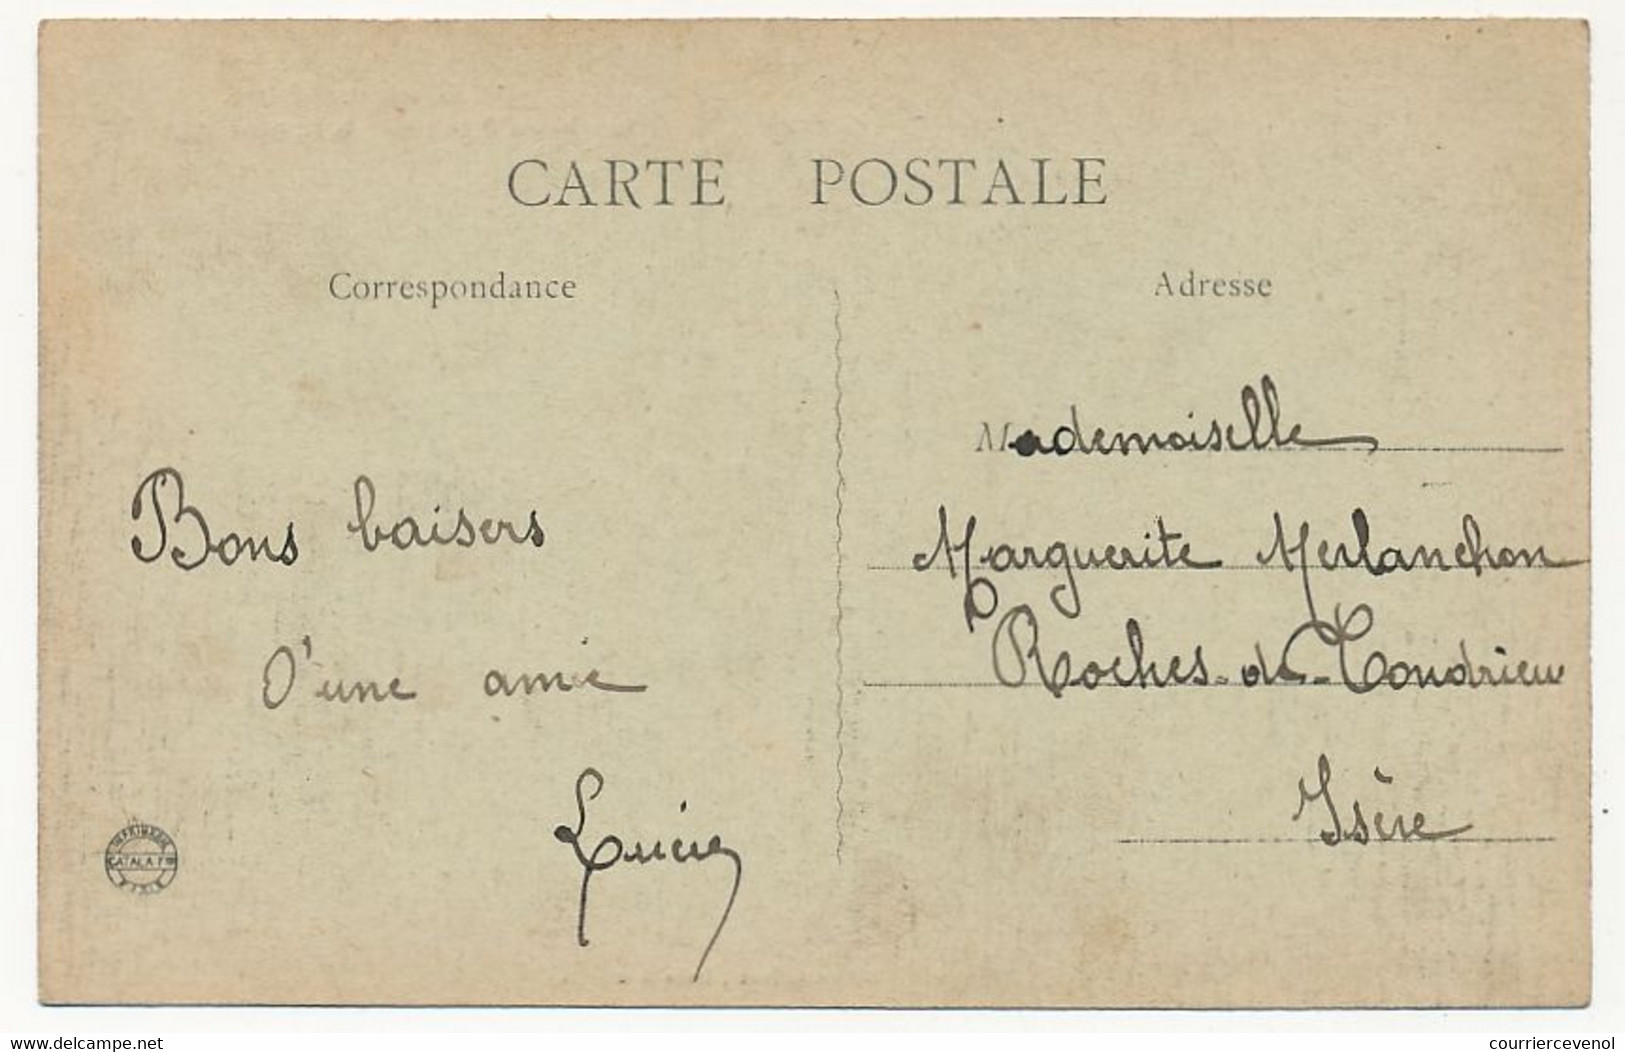 CARTE POSTALE
Correspondance
Adresse
Bons baisers
D'une amie
Lucie
Mademoiselle
Marguerite Merlanchon
Roches-de-Condrieu
Isère
IMPRIMERIE
CATALA Fres
PARIS
www.delcampe.net
courriercevenol